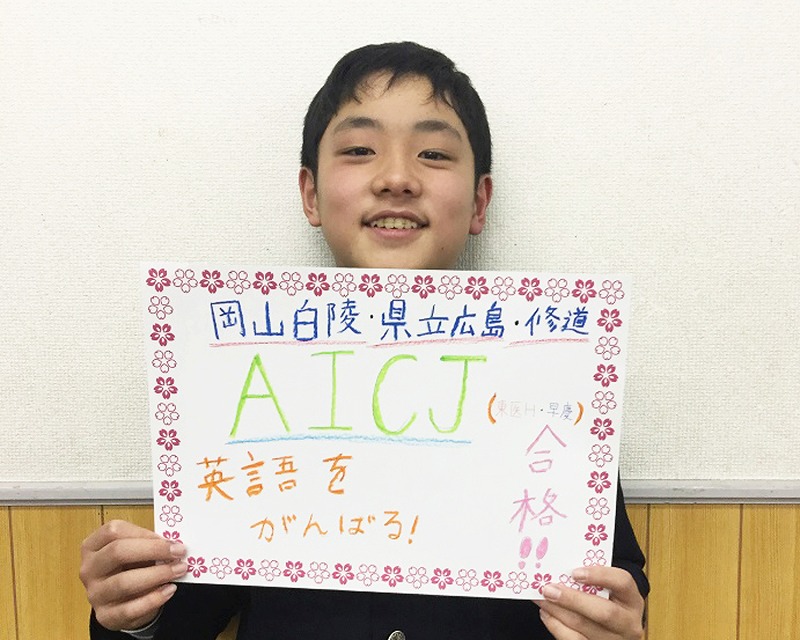 岡山白陵・県立広島・修道
AICJ
(東医H・早慶)
合格!!
英語を
がんばる!